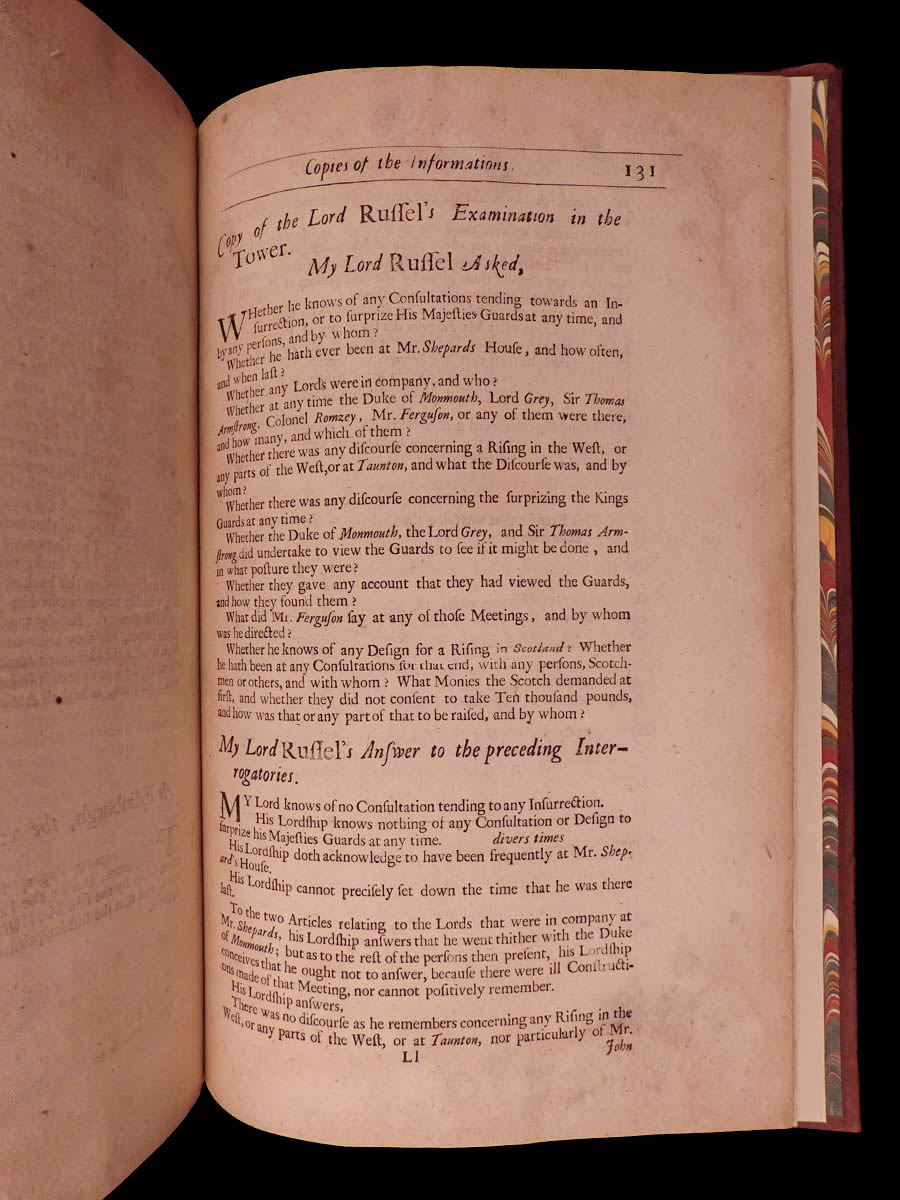 Copies of the Informations. 131
Copy of the Lord Ruſſel's Examination in the
Tower.
My Lord Ruſſel Asked,
WHether he knows of any Conſultations tending towards an In-
ſurrection, or to ſurprize His Majeſties Guards at any time, and
by any perſons, and by whom?
Whether he hath ever been at Mr. Shepards Houſe, and how often,
and when laſt?
Whether any Lords were in company, and who?
Whether at any time the Duke of Monmouth, Lord Grey, Sir Thomas
Armſtrong, Colonel Romzey, Mr. Ferguſon, or any of them were there,
and how many, and which of them?
Whether there was any diſcourſe concerning a Riſing in the Weſt, or
any parts of the Weſt, or at Taunton, and what the Diſcourſe was, and by
whom?
Whether there was any diſcourſe concerning the ſurprizing the Kings
Guards at any time?
Whether the Duke of Monmouth, the Lord Grey, and Sir Thomas Arm-
ſtrong did undertake to view the Guards to ſee if it might be done, and
in what poſture they were?
Whether they gave any account that they had viewed the Guards,
and how they found them?
What did Mr. Ferguſon ſay at any of thoſe Meetings, and by whom
was he directed?
Whether he knows of any Deſign for a Riſing in Scotland? Whether
he hath been at any Conſultations for that end, with any perſons, Scotch-
men or others, and with whom? What Monies the Scotch demanded at
firſt, and whether they did not conſent to take Ten thouſand pounds,
and how was that or any part of that to be raiſed, and by whom?
My Lord Ruſſel's Anſwer to the preceding Inter-
rogatories.
MY Lord knows of no Conſultation tending to any Inſurrection.
His Lordſhip knows nothing of any Conſultation or Deſign to
ſurprize his Majeſties Guards at any time. divers times
His Lordſhip doth acknowledge to have been frequently at Mr. Shep-
ard's Houſe.
His Lordſhip cannot preciſely ſet down the time that he was there
laſt.
To the two Articles relating to the Lords that were in company at
Mr. Shepards, his Lordſhip anſwers that he went thither with the Duke
of Monmouth; but as to the reſt of the perſons then preſent, his Lordſhip
conceives that he ought not to anſwer, becauſe there were ill Conſtructi-
ons made of that Meeting, nor cannot poſitively remember.
His Lordſhip anſwers,
There was no diſcourſe as he remembers concerning any Riſing in the
Weſt, or any parts of the Weſt, or at Taunton, nor particularly of Mr.
Ll John